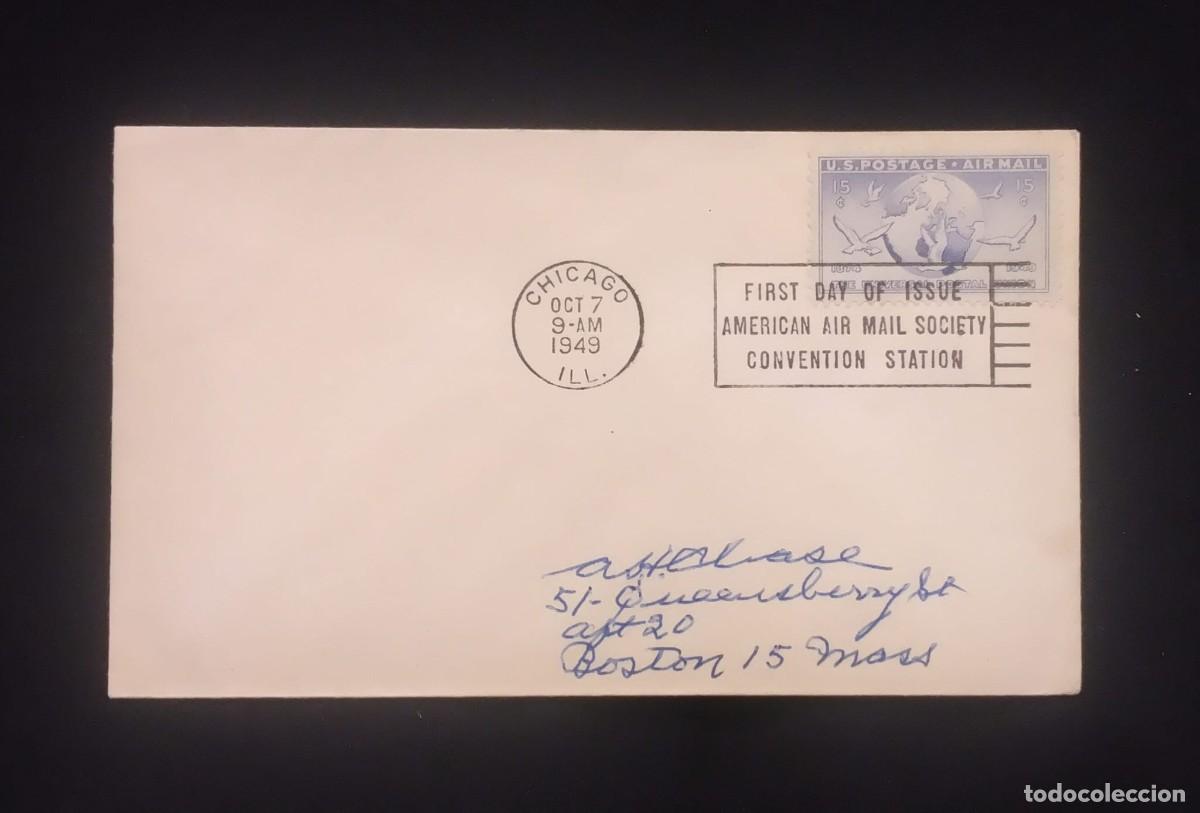 U.S. POSTAGE ★ AIR MAIL
15 ¢ 15 ¢
1874 1949
THE UNIVERSAL POSTAL UNION
CHICAGO
OCT 7
9-AM
1949
ILL.
FIRST DAY OF ISSUE
AMERICAN AIR MAIL SOCIETY
CONVENTION STATION
A H Chase
51- Queensberry St
apt 20
Boston 15 Mass
todocoleccion